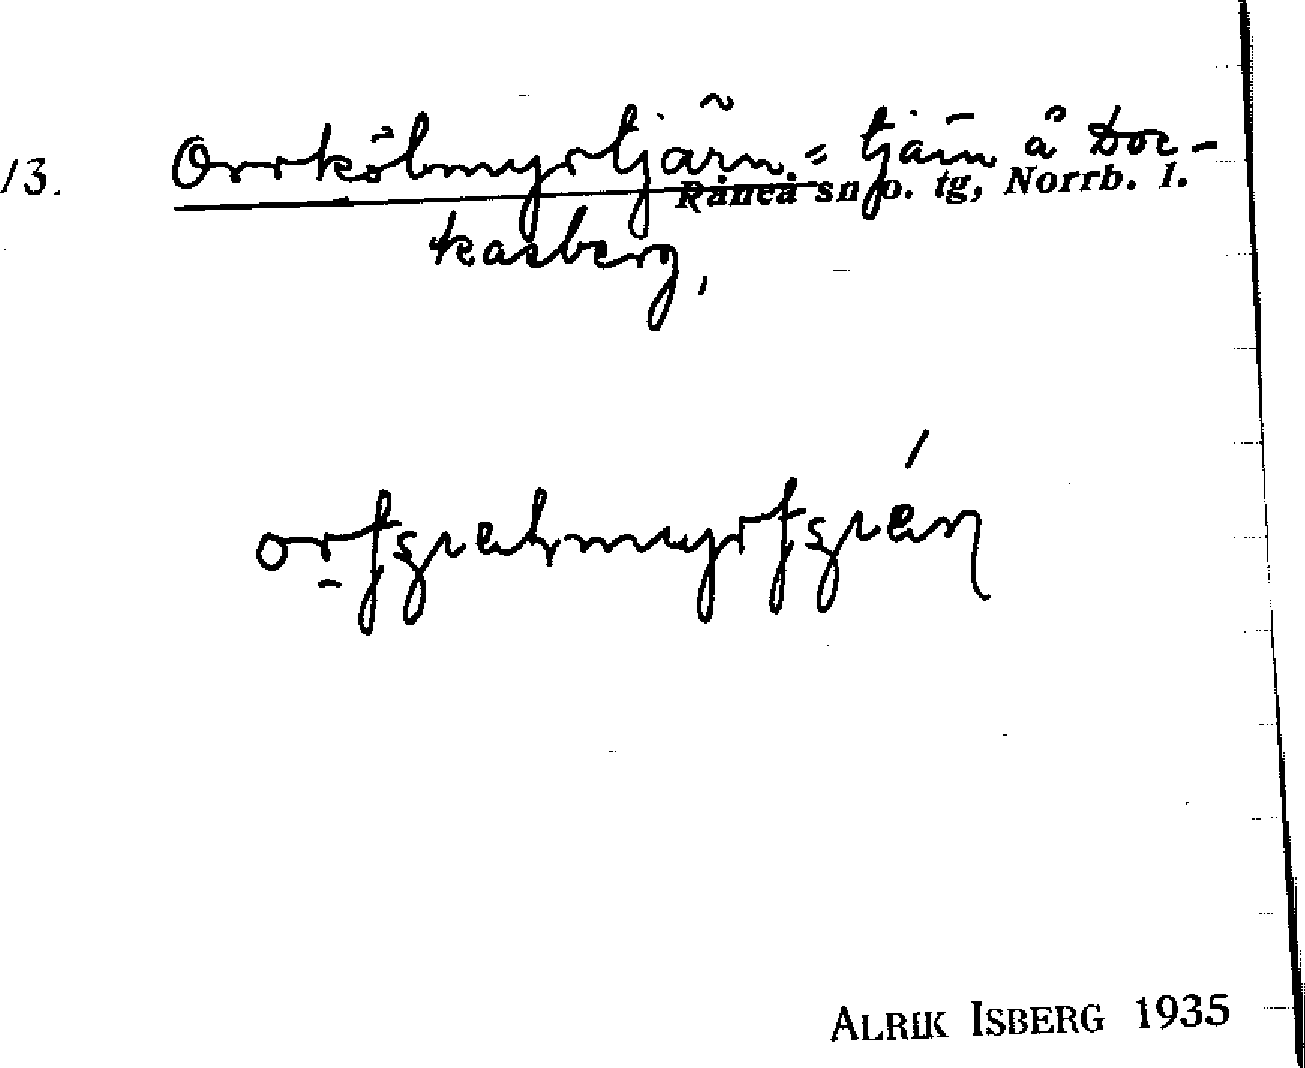 13. Orrkölmyrtjärn = tjärn å Doc-
Råneå sn o. tg, Norrb. l.
kasberg,
ALRIK ISBERG 1935